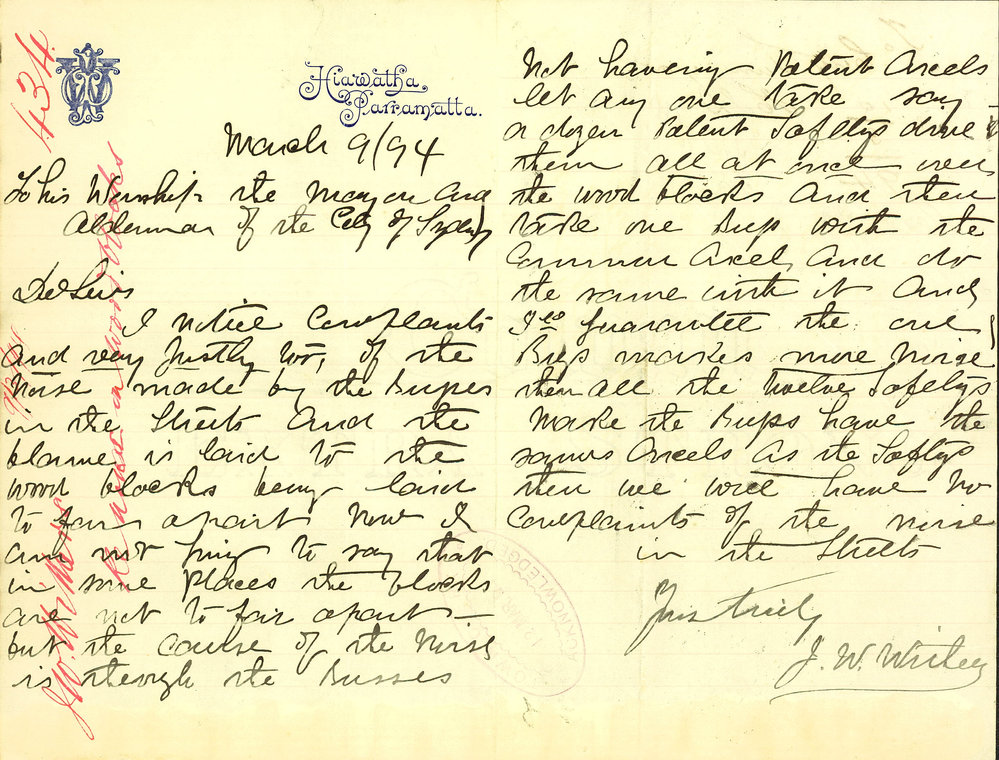 434
Hiawatha
Parramatta.
March 9/94
To his Worship the Mayor and
Alderman of the City of Sydney
Sirs
I notice Complants
and very Justly too, of the
Noise made by the Busses
in the Streets And the
blame is laid to the
Wood blocks being laid
to far apart Now I
am not going to say that
in some places the blocks
are not to far apart
but the cause of the Noise
is through the Busses
Not having Patent Axels
let any one take say
a dozen Patent Saftys drive
them all at once over
the wood blocks And then
take one Buss with the
Common Axel, And do
the same with it And
I Guarantee the one
Buss makes more Noise
then all the twelve Saftys
Make the Buss have the
same Axels As the Saftys
then we will have No
Complaints of the noise
in the Streets
Yours truly
J. W. Withey
ACKNOWLEDG
on Wood Blocks